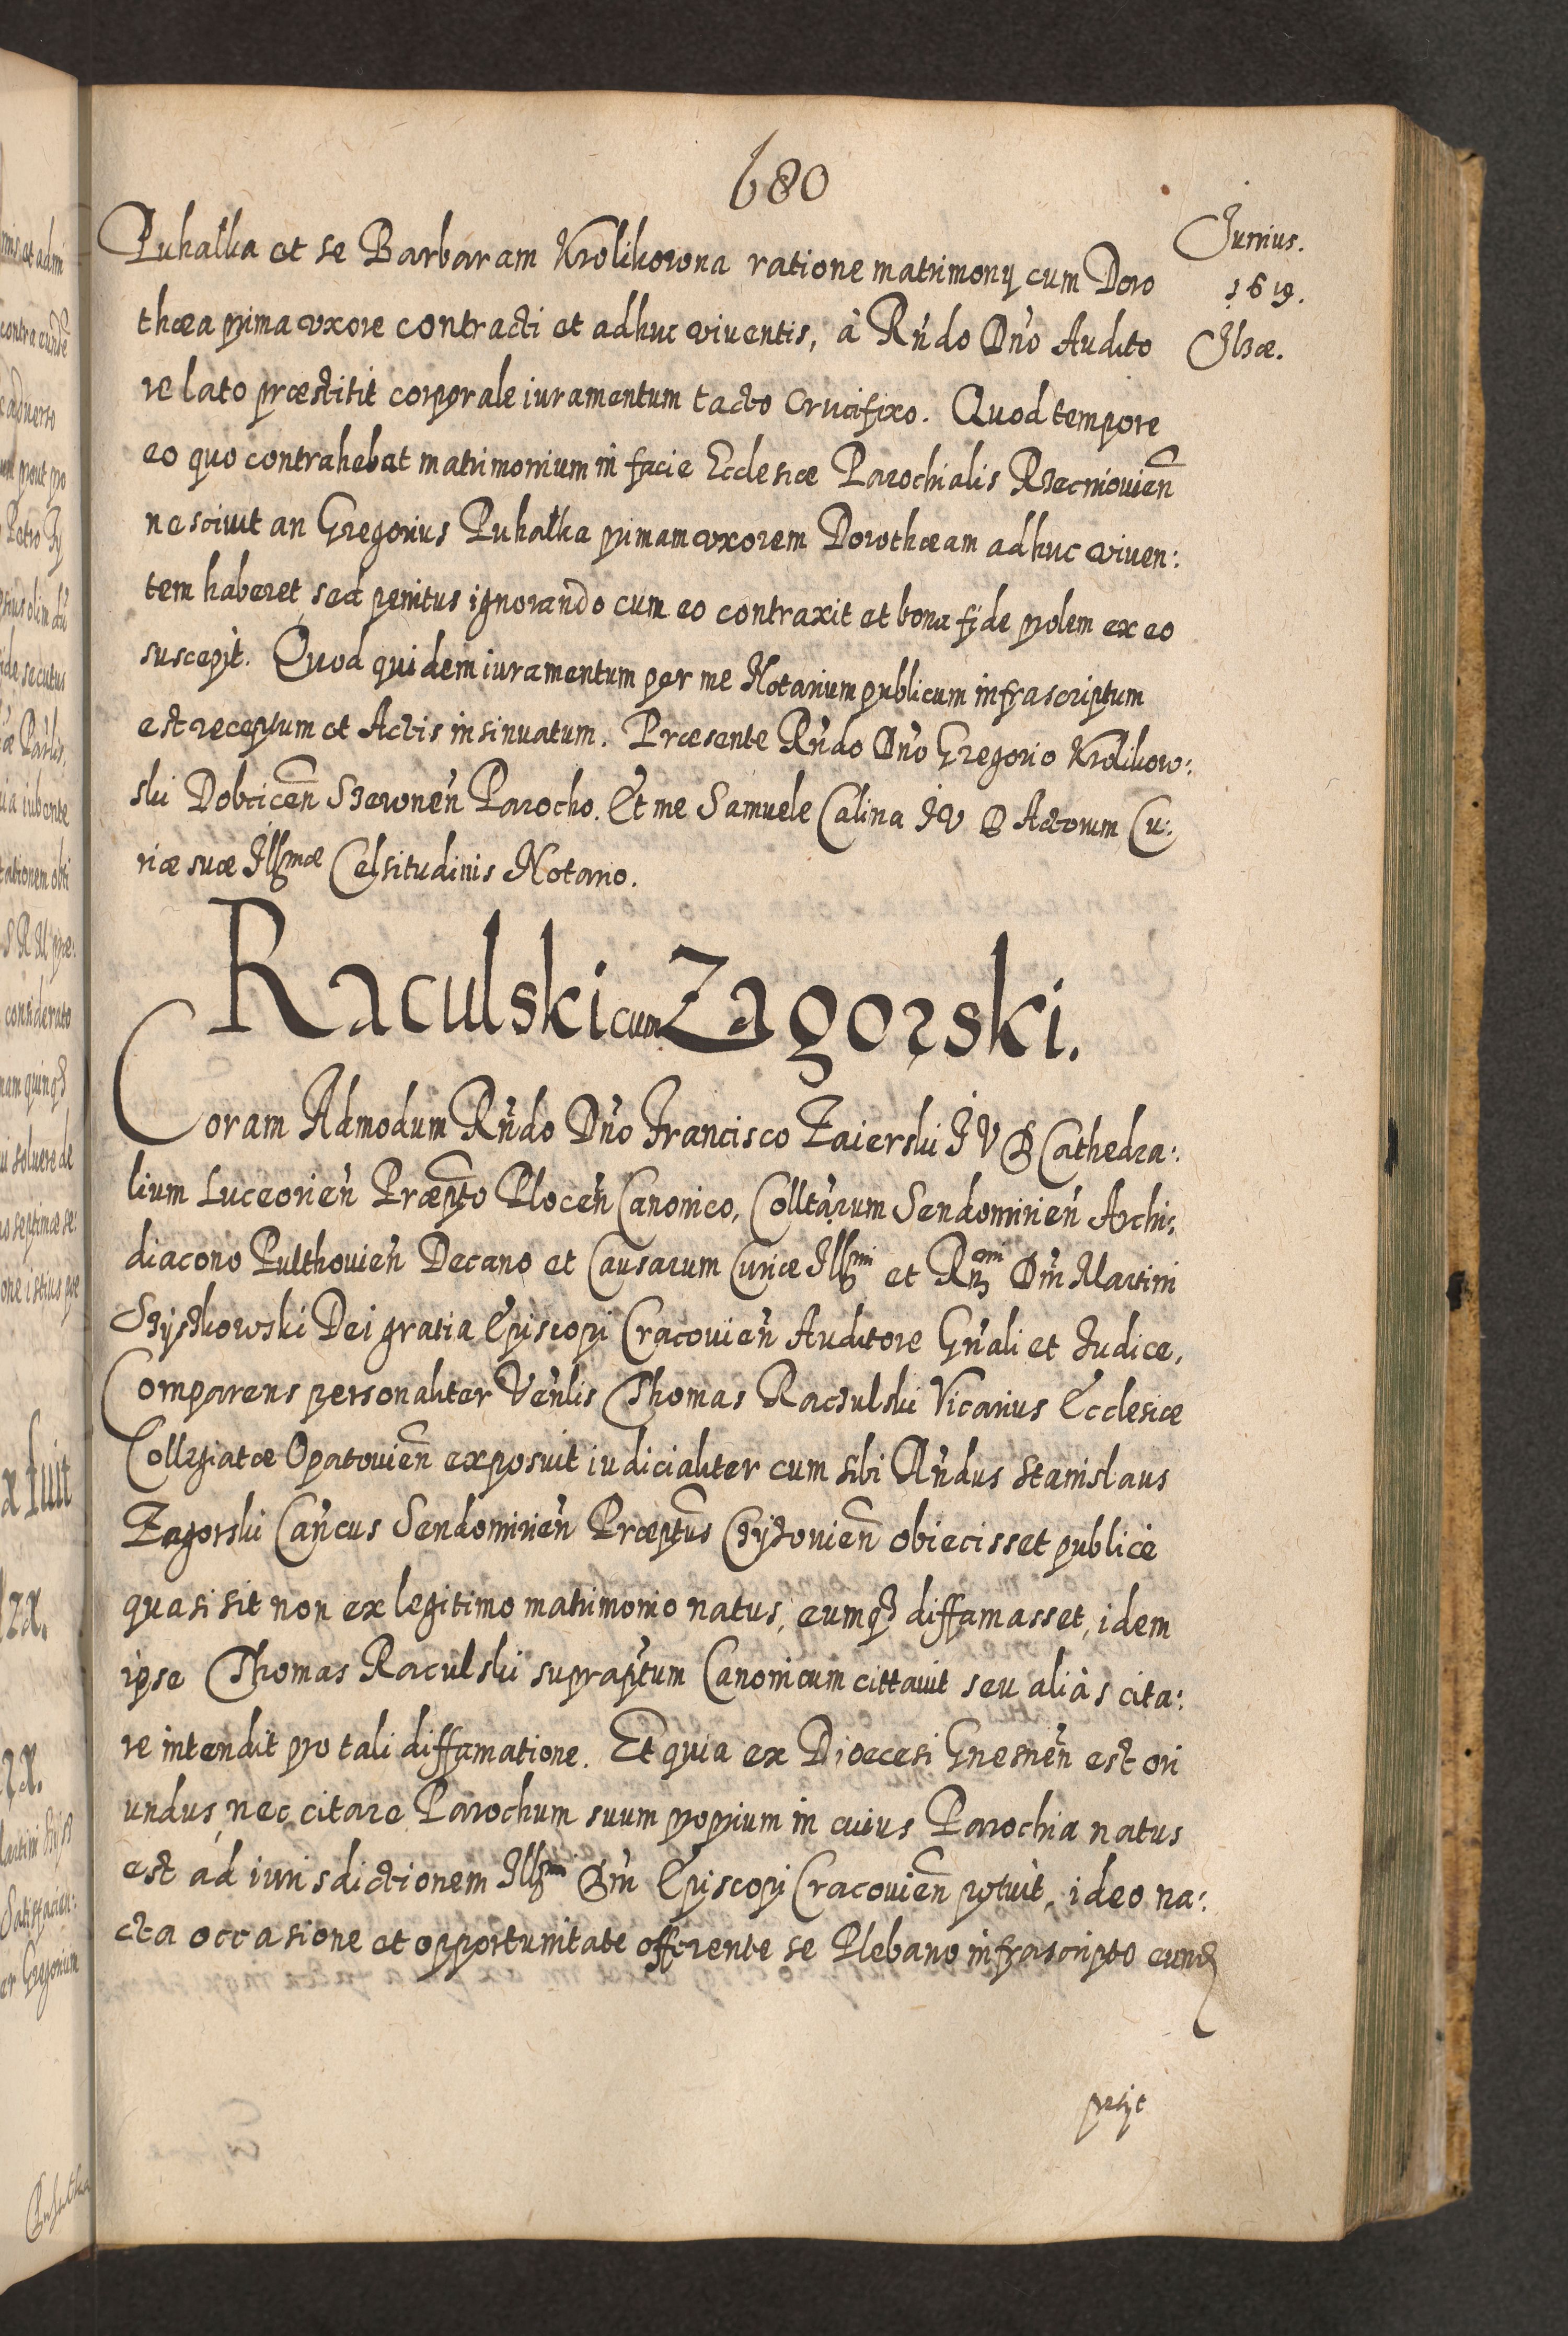 680
Junius.
1619.
Ilzæ.
Puhałka et se Barbaram Krolikowna ratione matrimonÿ cum Doro
thæa prima vxore contracti et adhuc viventis, à Rńdo Dńo Audito
re lato præstitit corporale iuramentum tacto Crucifixo. Quod tempore
eo quo contrahebat matrimonium in facie Ecclesiæ Parochialis Rzecniovień
nescivit an Gregorius Puhałka primam vxorem Dorothæam adhuc viven:
tem haberet, sed penitus ignorando cum eo contraxit et bona fide prolem ex eo
suscepit. Quod quidem iuramentum per me Notarium publicum infrascriptum
est receptum et Actis insinuatum. Præsente Rńdo Dńo Gregorio Krolikow:
ski Dobcicen Szewneń Parocho. Et me Samuele Calina J V D Actorum Cu:
riæ suæ Illꝫmæ Celsitudinis Notario.
Raculski cum Zagorski.
Coram Admodum Rńdo Dńo Francisco Zaierski J V D Cathedra:
lium Luceorień Præpto Ploceń Canonico, Colltarum Sendomirień Archi:
diacono Pułthovień Decano et Causarum Curiæ Illꝫmi et Rnꝫmi Dńi Martini
Szyszkowski Dei gratia Episcopi Cracovień Auditore Gńali et Iudice,
Comparens personaliter Veńlis Thomas Raczulski Vicarius Ecclesiæ
Collegiatæ Opatovień exposuit iudicialiter cum sibi Rńdus Stanislaus
Zagorski Cańcus Sendomirień Præptus Czyzovień obiecisset publicè
quasi sit non ex legitimo matrimonio natus, eumqꝫ diffamasset, idem
ipse Thomas Raculski supraptum Canonicum cittavit seu aliàs cita:
re intendit pro tali diffamatione. Et quia ex Diœcesi Gnesneń est ori
undus, nec citare Parochum suum proprium in cuius Parochia natus
est ad iurisdictionem Illꝫmi Dńi Episcopi Cracovień potuit, ideo na:
cta occasione et opportunitate offerente se Plebano infrascripto eund